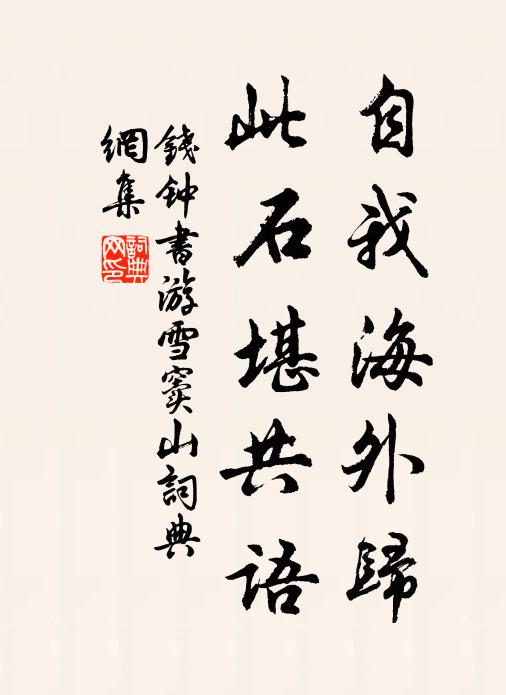 自我海外歸
此石堪共語
錢钟書游雪竇山詞典
網集
詞典
网印